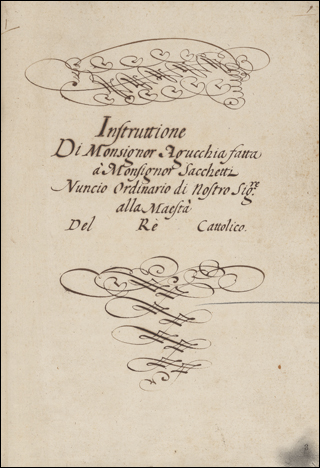 Instruttione
Di Monsignor Agucchia fatta
à Monsignor Sacchetti
Nuncio Ordinario di Nostro Sigre.
alla Maestà
Del Rè Cattolico.